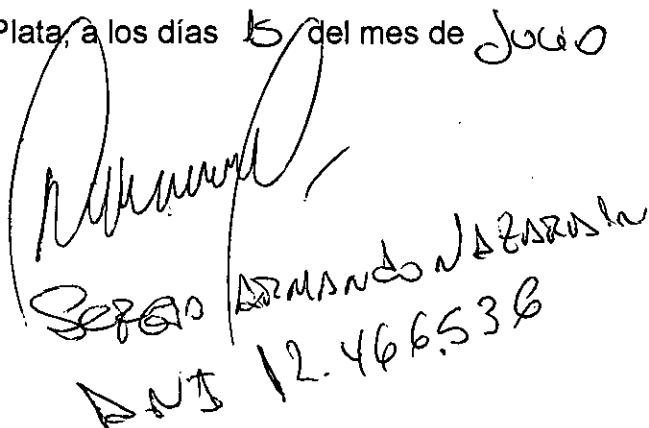 Plata, a los días 15 del mes de Julio
SERGIO ARMANDO NAZARAIN
DNI 12.466.536